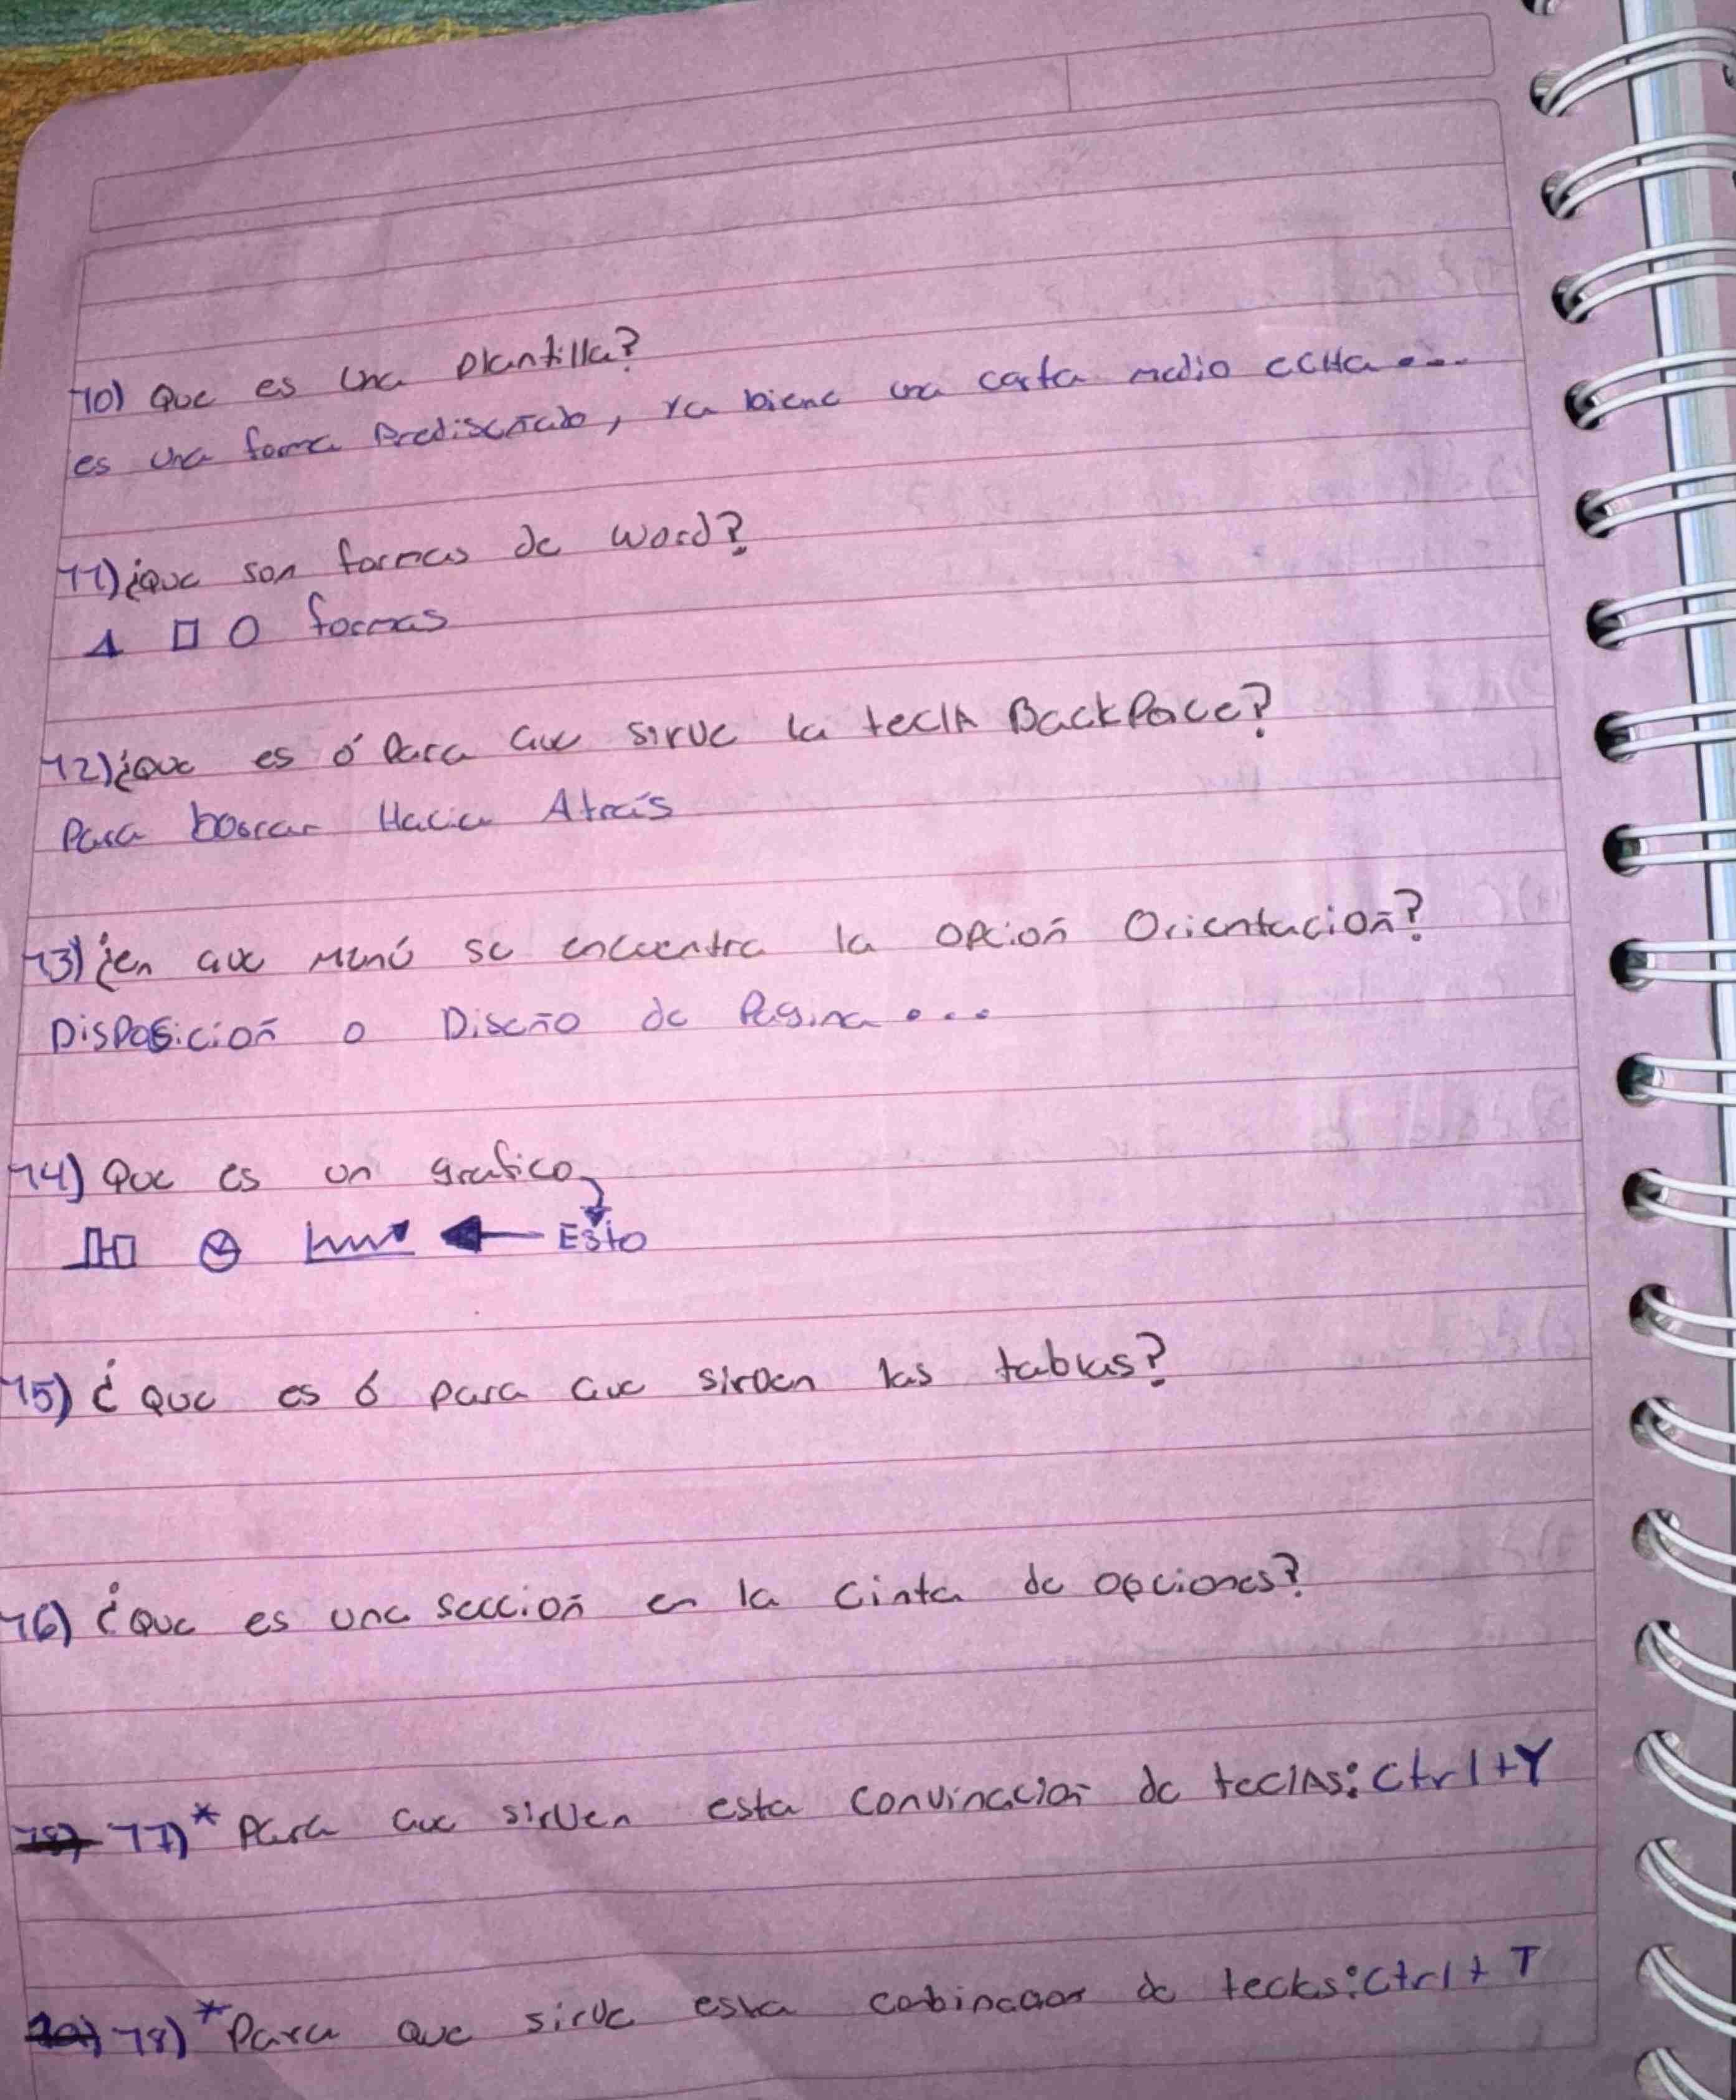 10) Que es una plantilla?
es una forma Prediseñado, ya biene una carta medio echa...
11) ¿Que son formas de Word?
formas
12) ¿Que es ó Para que sirve la teclA BackPace?
Para borrar Hacia Atrás
13) ¿en que Menú se encuentra la opción Orientación?
Disposición o Diseño de Pagina...
14) Que es un grafico
Esto
15) ¿Que es ó para que sirven las tablas?
16) ¿Que es una sección en la Cinta de opciones?
17)* Para que sirven esta convinación de teclAs: Ctrl+Y
18)* Para que sirve esta cobinacion de teclas: Ctrl+T